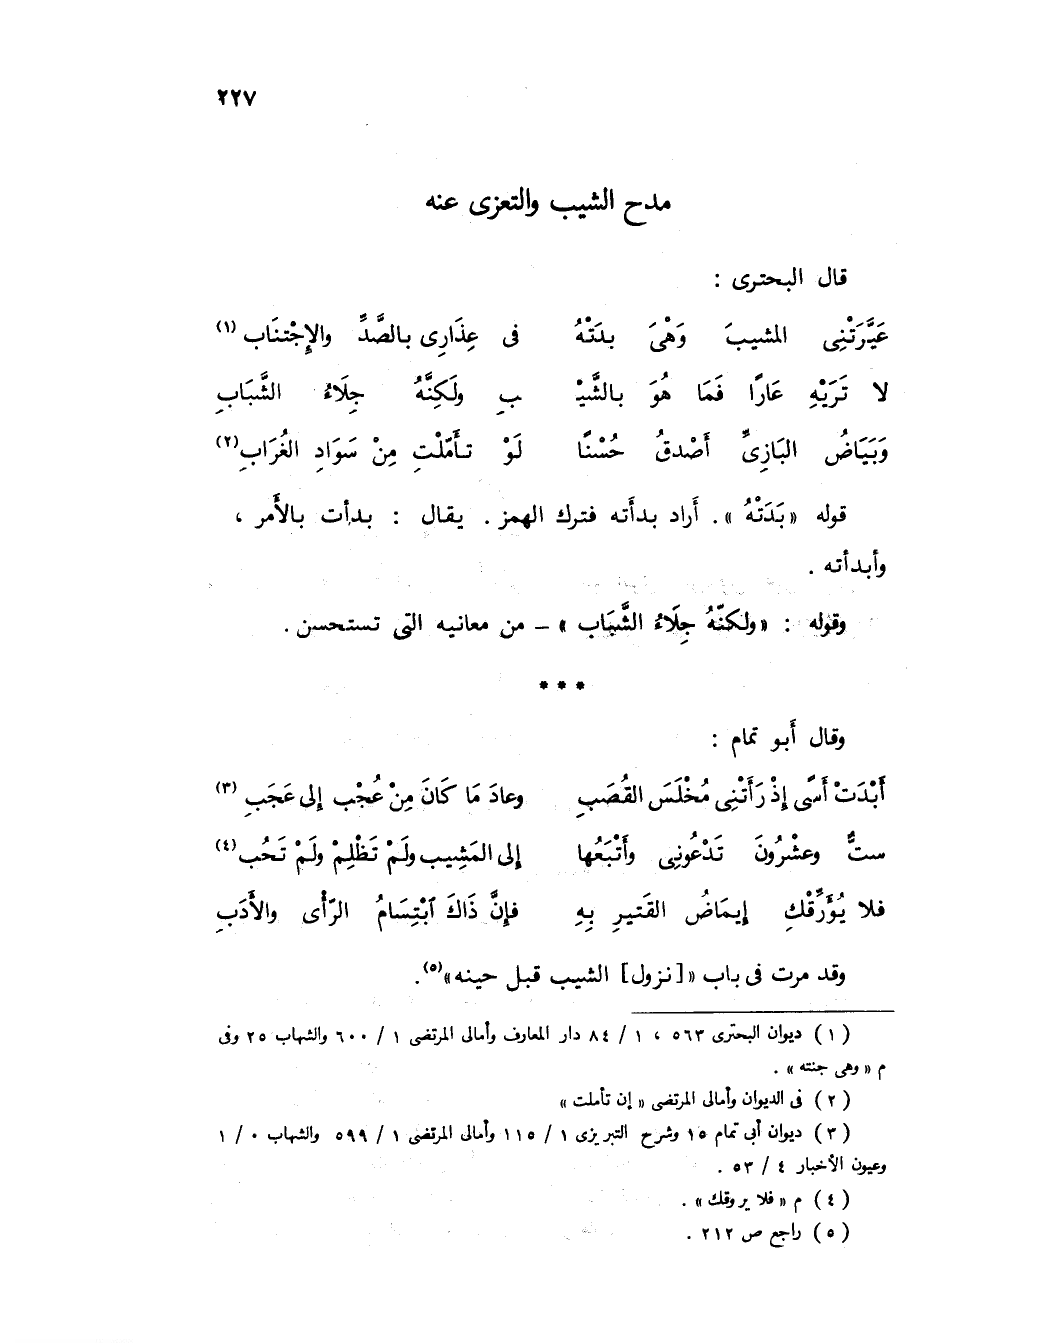 ٢٢٧
مدح الشيب والتعزى عنه
قال البحترى :
عَيَّرَتْنِى المشيبَ وَهْىَ بدَتْهُ فى عِذَارِى بالصَّدِّ والإِجْتنَاب (١)
لا تَرَيْهِ عَارًا فَمَا هُوَ بالشَّيْ بِ ولَكِنَّهُ جِلَاءُ الشَّبَابِ
وَبَيَاضُ البَازِىِّ أَصْدقُ حُسْنًا لَوْ تأمّلْتِ مِنْ سَوَادِ الغُرَابِ (٢)
قوله «بَدَتْهُ» . أَراد بدأَته فترك الهمز . يقال : بدأت بالأَمر ،
وأبدأته .
وقوله : «ولكنّهُ جِلَاءُ الشَّبَاب» – من معانيه التى تستحسن .
* * *
وقال أَبو تمام :
أَبْدَتْ أَسًى إِذْ رَأَتْنِى مُخْلَسَ القُصَبِ وعادَ مَا كَانَ مِنْ عُجْبٍ إلى عَجَبِ (٣)
ستٌّ وعشْرُونَ تَدْعُونِى وأَتْبَعُها إلى المَشِيبِ ولَمْ تَظْلِمْ ولَمْ تَحُبِ (٤)
فلا يُؤَرِّقْكِ إِيمَاضُ القَتيرِ بِهِ فإِنَّ ذَاكَ ٱبْتِسَامُ الرّأْى والأَدَبِ
وقد مرت فى باب «[نزول] الشيب قبل حينه» (٥) .
(١) ديوان البحترى ٥٦٣ ، ١ / ٨٤ دار المعارف وأمالى المرتضى ١ / ٦٠٠ والشهاب ٢٥ وفى
م « وهى جنته » .
(٢) فى الديوان وأمالى المرتضى « إن تأملت »
(٣) ديوان أبى تمام ١٥ وشرح التبريزى ١ / ١١٥ وأمالى المرتضى ١ / ٥٩٩ والشهاب ١ / ٠
وعيون الأخبار ٤ / ٥٣ .
(٤) م « فلا يروقك » .
(٥) راجع ص ٢١٢ .